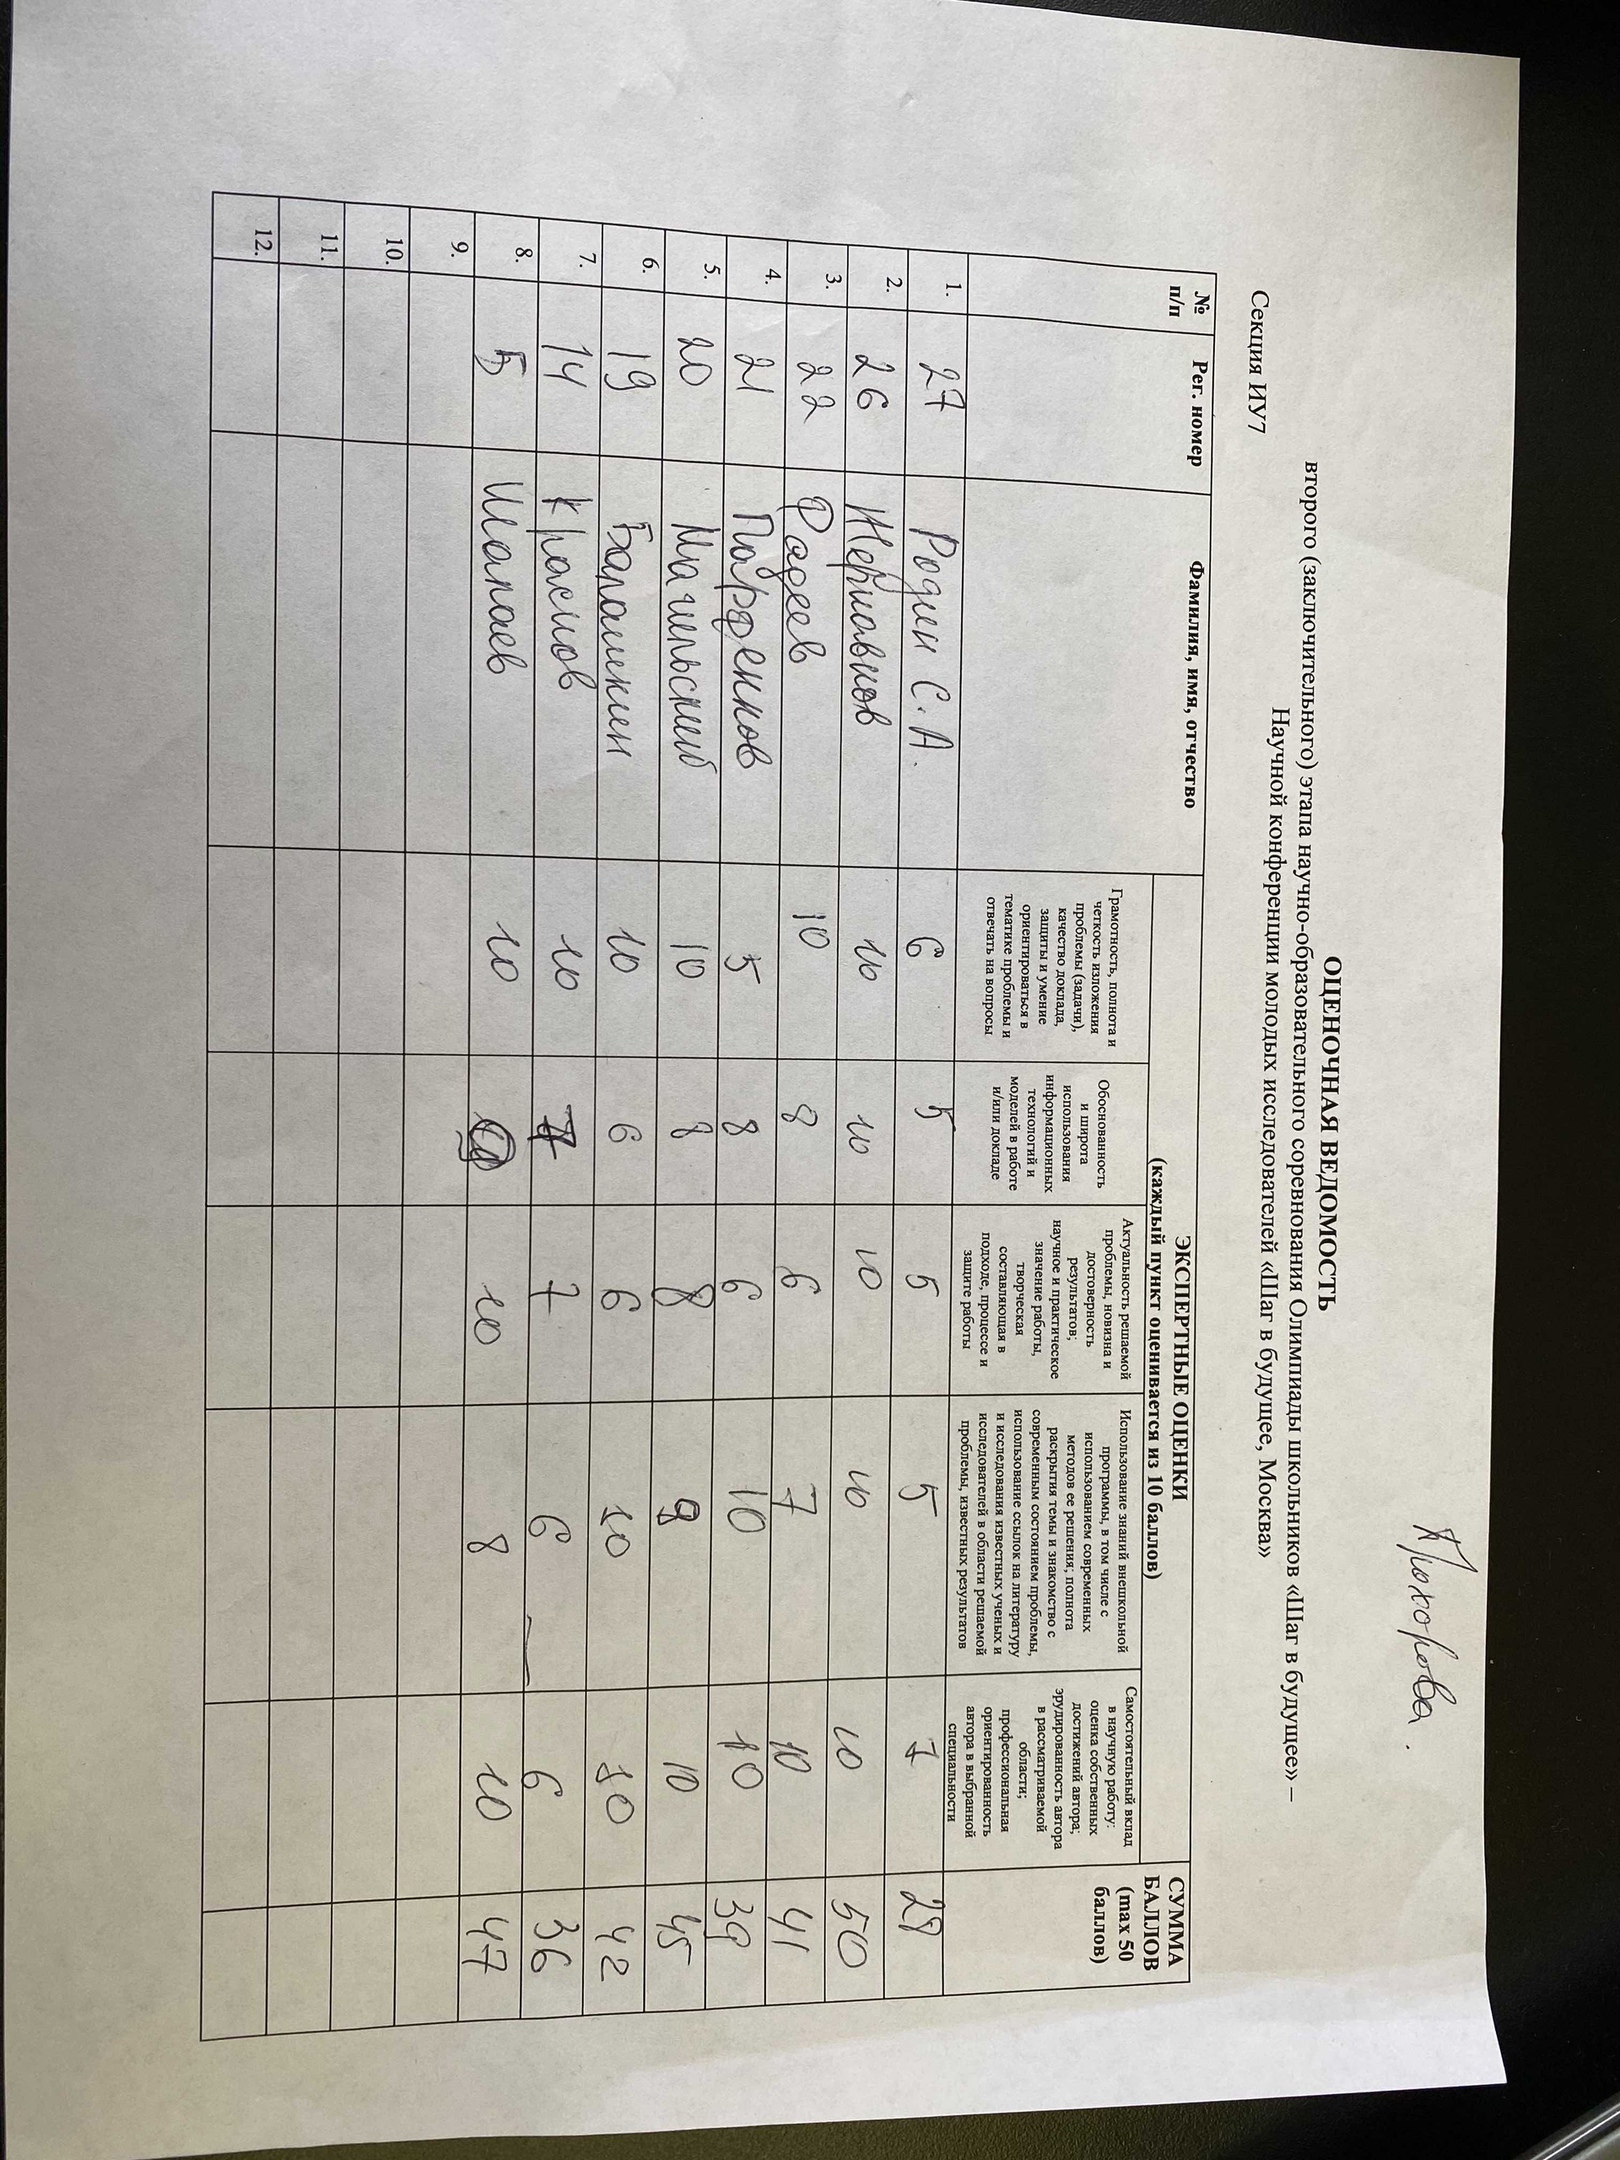 Прохорова.
ОЦЕНОЧНАЯ ВЕДОМОСТЬ
второго (заключительного) этапа научно-образовательного соревнования Олимпиады школьников «Шаг в будущее» –
Научной конференции молодых исследователей «Шаг в будущее, Москва»
Секция ИУ7
№ п/п
Рег. номер
Фамилия, имя, отчество
ЭКСПЕРТНЫЕ ОЦЕНКИ
(каждый пункт оценивается из 10 баллов)
СУММА
БАЛЛОВ
(max 50
баллов)
Грамотность, полнота и
четкость изложения
проблемы (задачи),
качество доклада,
защиты и умение
ориентироваться в
тематике проблемы и
отвечать на вопросы
Обоснованность
и широта
использования
информационных
технологий и
моделей в работе
и/или докладе
Актуальность решаемой
проблемы, новизна и
достоверность
результатов;
научное и практическое
значение работы,
творческая
составляющая в
подходе, процессе и
защите работы
Использование знаний внешкольной
программы, в том числе с
использованием современных
методов ее решения; полнота
раскрытия темы и знакомство с
современным состоянием проблемы,
использование ссылок на литературу
и исследования известных ученых и
исследователей в области решаемой
проблемы, известных результатов
Самостоятельный вклад
в научную работу:
оценка собственных
достижений автора;
эрудированность автора
в рассматриваемой
области;
профессиональная
ориентированность
автора в выбранной
специальности
1. 27 Родин С.А. 6 5 5 5 7 28
2. 26 10 10 10 10 10 50
3. 22 Фадеев 10 8 6 7 10 41
4. 21 Парфенков 5 8 6 10 10 39
5. 20 Магильский 10 8 8 9 10 45
6. 19 Баранкин 10 6 6 10 10 42
7. 14 Краснов 10 7 7 6 6 36
8. 5 10 10 8 10 47
9.
10.
11.
12.